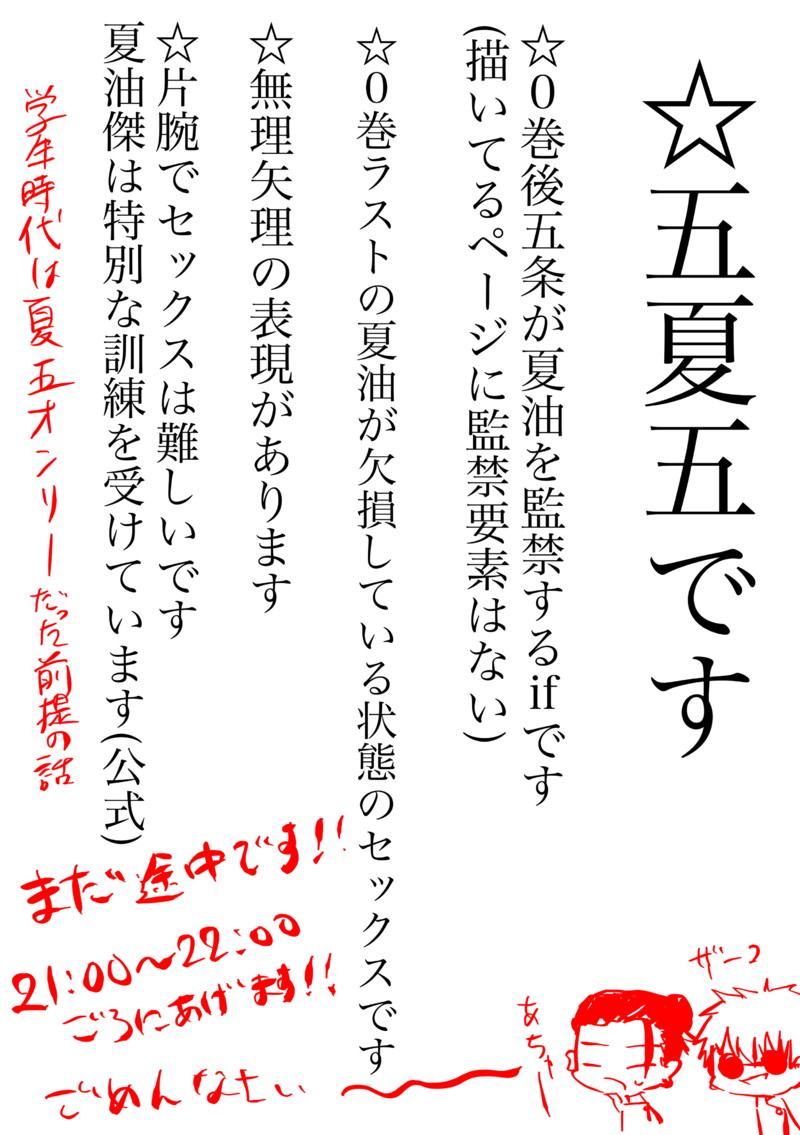 ☆五夏五です
☆0巻後五条が夏油を監禁するifです
(描いてるページに監禁要素はない)
☆0巻ラストの夏油が欠損している状態のセックスです
☆無理矢理の表現があります
☆片腕でセックスは難しいです
夏油傑は特別な訓練を受けています(公式)
学生時代は夏五オンリーだった前提の話
まだ途中です!!
21:00~22:00
ごろにあげます!!
ごめんなさい
あちゃー